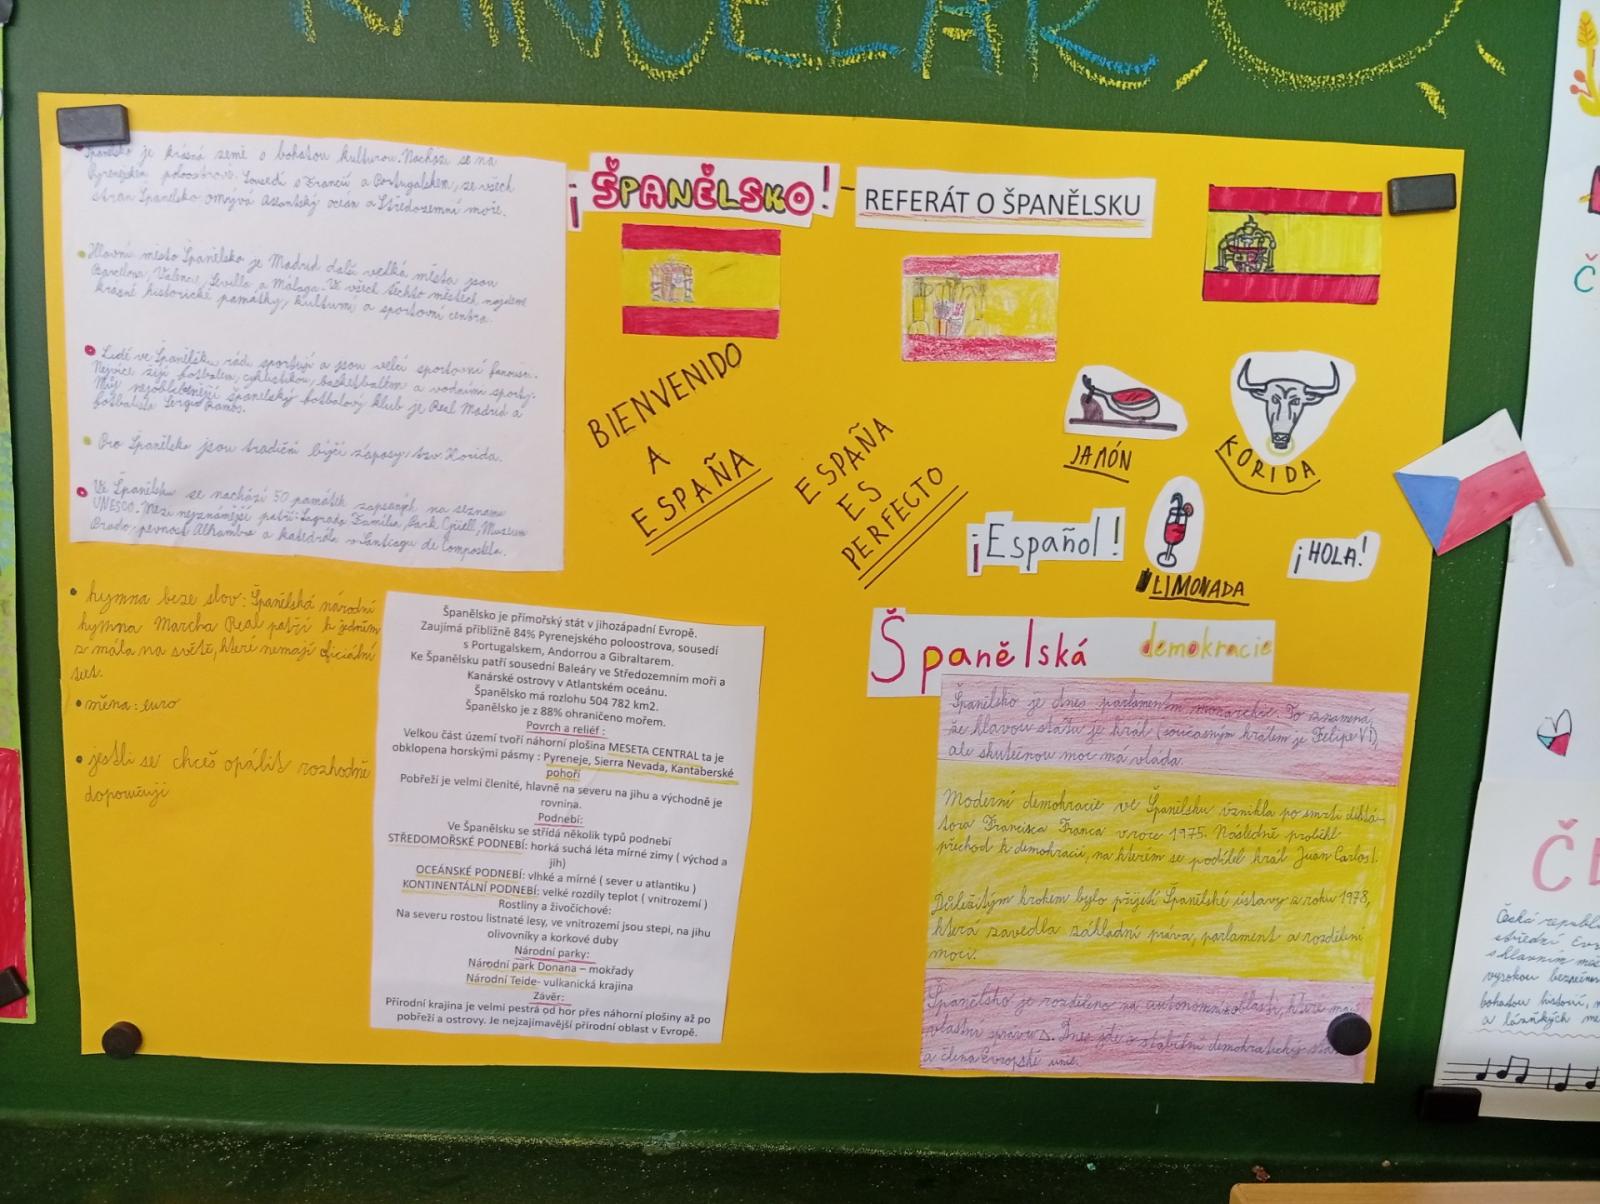 KANCELÁŘ
Španělsko je krásná země s bohatou kulturou. Nachází se na
Pyrenejském poloostrově. Sousedí s Francií a Portugalskem, ze všech
stran Španělsko omývá Atlantský oceán a Středozemní moře.
Hlavní město Španělska je Madrid další velká města jsou
Barcelona, Valencie, Sevilla a Málaga. Ve všech těchto městech najdeme
krásné historické památky, kulturní a sportovní centra.
Lidé ve Španělsku rádi sportují a jsou velcí sportovní fanoušci.
Nejvíce žijí fotbalem, cyklistikou, basketbalem a vodními sporty.
Můj nejoblíbenější španělský fotbalový klub je Real Madrid a
fotbalista Sergio Ramos.
Pro Španělsko jsou tradiční býčí zápasy, tzv. Korida.
Ve Španělsku se nachází 50 památek zapsaných na seznamu
UNESCO. Mezi nejznámější patří: Sagrada Família, Park Güell, Muzeum
Prado, pevnost Alhambra a katedrála v Santiagu de Compostela.
• hymna beze slov: Španělská národní
hymna Marcha Real patří k jedním
z mála na světě, které nemají oficiální
text.
• měna: euro
• jestli se chceš opálit rozhodně
doporučuji
¡ŠPANĚLSKO! - REFERÁT O ŠPANĚLSKU
BIENVENIDO
A
ESPAÑA
ESPAÑA
ES
PERFECTO
JAMÓN
KORIDA
¡Español!
LIMONADA
¡HOLA!
Španělsko je přímořský stát v jihozápadní Evropě.
Zaujímá přibližně 84% Pyrenejského poloostrova, sousedí
s Portugalskem, Andorrou a Gibraltarem.
Ke Španělsku patří sousední Baleáry ve Středozemním moři a
Kanárské ostrovy v Atlantském oceánu.
Španělsko má rozlohu 504 782 km2.
Španělsko je z 88% ohraničeno mořem.
Povrch a reliéf :
Velkou část území tvoří náhorní plošina MESETA CENTRAL ta je
obklopena horskými pásmy : Pyreneje, Sierra Nevada, Kantaberské
pohoří
Pobřeží je velmi členité, hlavně na severu na jihu a východně je
rovnina.
Podnebí:
Ve Španělsku se střídá několik typů podnebí
STŘEDOMOŘSKÉ PODNEBÍ: horká suchá léta mírné zimy ( východ a
jih)
OCEÁNSKÉ PODNEBÍ: vlhké a mírné ( sever u atlantiku )
KONTINENTÁLNÍ PODNEBÍ: velké rozdíly teplot ( vnitrozemí )
Rostliny a živočichové:
Na severu rostou listnaté lesy, ve vnitrozemí jsou stepi, na jihu
olivovníky a korkové duby
Národní parky:
Národní park Donana – mokřady
Národní Teide- vulkanická krajina
Závěr:
Přírodní krajina je velmi pestrá od hor přes náhorní plošiny až po
pobřeží a ostrovy. Je nejzajímavější přírodní oblast v Evropě.
Španělská demokracie
Španělsko je dnes parlamentní monarchie. To znamená,
že hlavou státu je král (současným králem je Felipe VI),
ale skutečnou moc má vláda.
Moderní demokracie ve Španělsku vznikla po smrti diktá-
tora Francisca Franca v roce 1975. Následně proběhl
přechod k demokracii, na kterém se podílel král Juan Carlos I.
Důležitým krokem bylo přijetí Španělské ústavy z roku 1978,
která zavedla základní práva, parlament a rozdělení
moci.
Španělsko je rozděleno na autonomní oblasti, které mají
vlastní správu. Dnes jde o stabilní demokratický
a člena Evropské unie.
Č
Česká republi
střední Evr
s hlavním mě
vysokou bezpečno
bohatou historií,
a lázňských mě